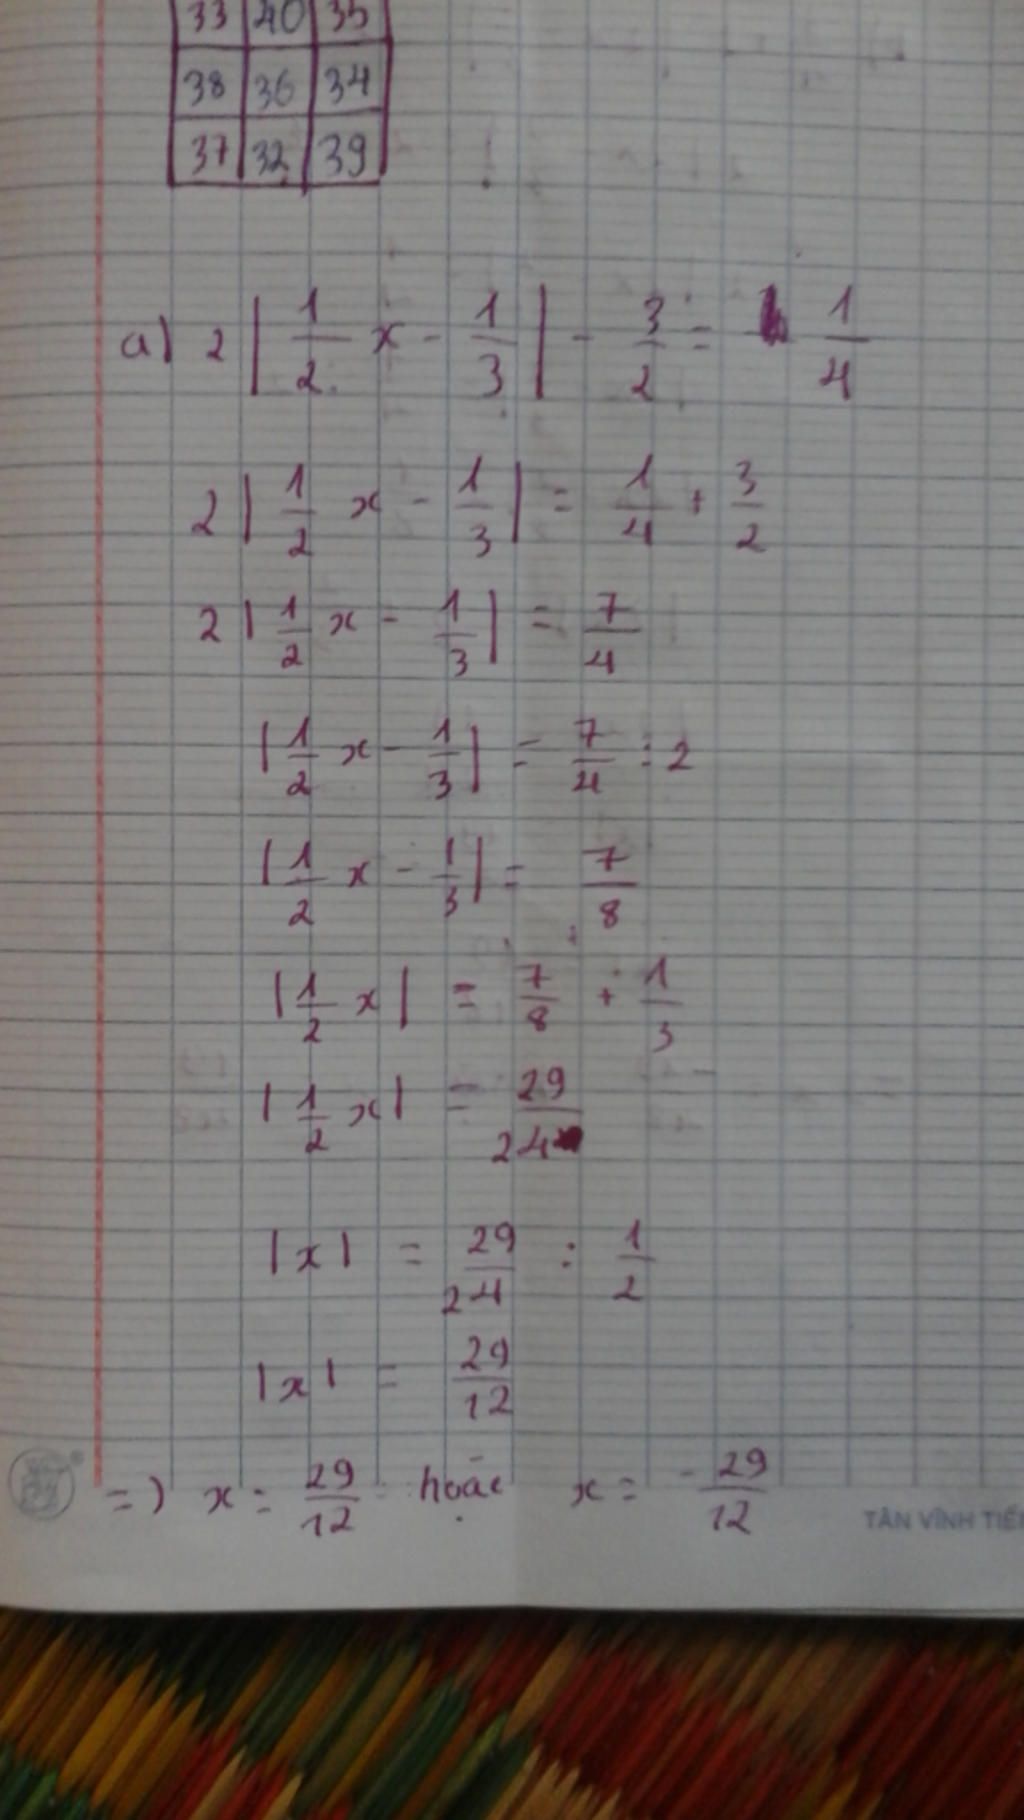 33 40 35
38 36 34
37 32 39
a) 2 | 1/2 x - 1/3 | - 3/2 = 1/4
2 | 1/2 x - 1/3 | = 1/4 + 3/2
2 | 1/2 x - 1/3 | = 7/4
| 1/2 x - 1/3 | = 7/4 : 2
| 1/2 x - 1/3 | = 7/8
| 1/2 x | = 7/8 + 1/3
| 1/2 x | = 29/24
| x | = 29/24 : 1/2
| x | = 29/12
=) x = 29/12 hoặc x = - 29/12
TÂN VĨNH TIẾN